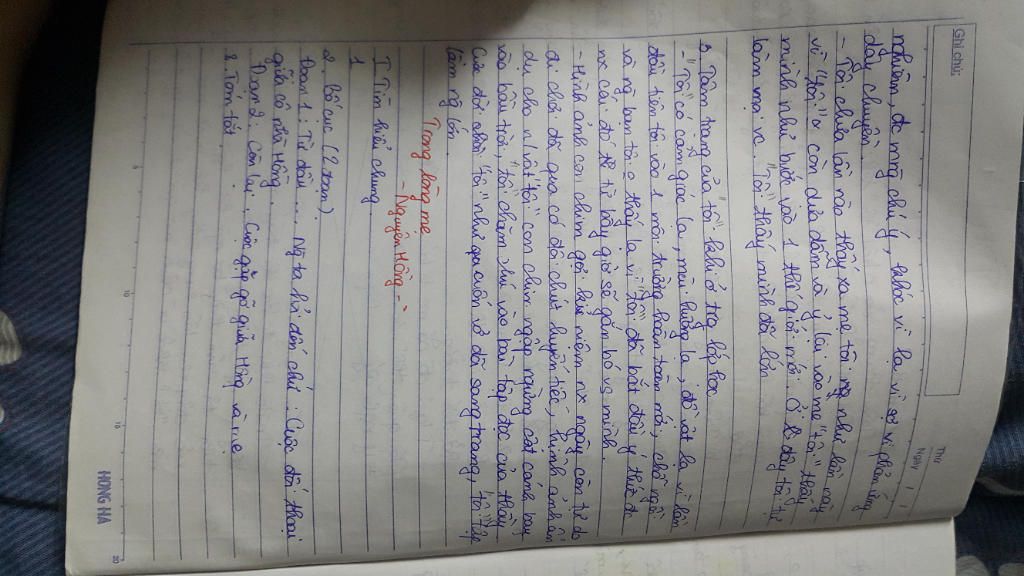 Ghi chú:
Thứ
Ngày / /
nghiêm, đc mọng chú ý, khóc vì lạ vì sợ vì phản ứng
dây chuyền.
- Tôi chưa lần nào thấy xa mẹ tôi ng như lần này
vì "tôi" là con đứa dám và ỷ lại vào mẹ "tôi" thấy
mình như bước vào 1 thế giới mới. Ở đây tôi tự
làm mọi vc. "Tôi" thấy mình đã lớn.
3. Tâm trạng của "tôi" khi ở trg lớp học
- "Tôi" có cảm giác lạ, mùi hương lạ, đồ vật lạ vì lần
đầu tiên tôi vào 1 môi trường hoàn toàn mới, chỗ ngồi
và ng bạn tôi o thấy lạ vì "tôi" đã bắt đầu ý thức đc
nx cái đó thể từ bây giờ sẽ gắn bó vs mình.
- Hình ảnh con chim gợi kỷ niệm nx ngày còn tự do
đi chơi đã qua có đôi chút luyến tiếc, hình ảnh ẩn
dụ cho n/vật "tôi" con chim ngập ngừng cất cánh bay
vào bầu trời, "tôi" chăm chú vào bàn tập đọc của thầy
Cuộc đời nhân "tôi" như qa cuốn vở đã sang trang, tôi tập
làm ng lớn.
Trong lòng mẹ
- Nguyên Hồng -
I Tìm hiểu chung
1
2. Bố cục (2 đoạn).
Đoạn 1: Từ đầu ... Ng ta hỏi đến chú: Cuộc đối thoại
giữa cô nhà Hồng.
Đoạn 2: Còn lại. Cuộc gặp gỡ giữa Hồng và mẹ
8. Tóm tắt.
5
10
15
20
HONG HA